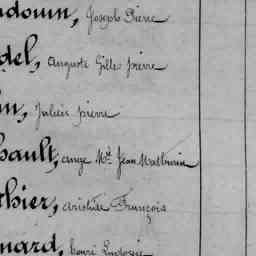 douin, Joseph Pierre
del, Auguste Gilles pierre
in, Julien pierre
bault, ange Me. Jean Mathurin
thier, aristide François
nard, henri Ludovic